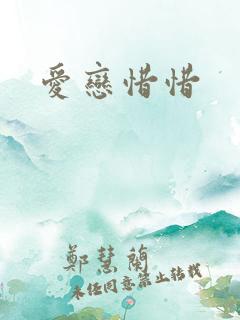 愛戀惜惜
鄭慧蘭
未经同意禁止转载